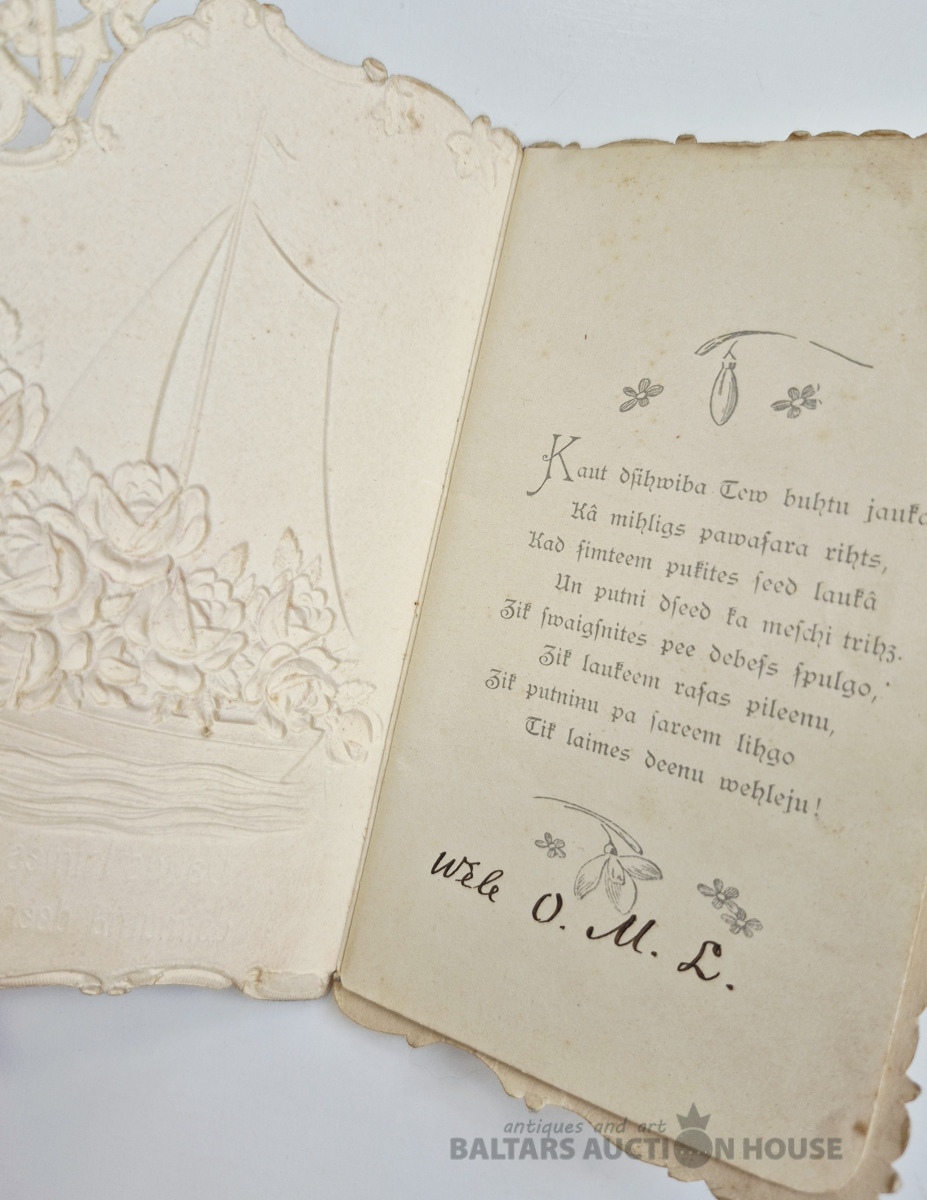 Kaut dſihwiba Tew buhtu jauka
Kâ mihligs pawaſara rihts,
Kad ſimteem pukites ſeed laukâ
Un putni dſeed ka meſchi trihz.
Zik ſwaigſnites pee debeſs ſpulgo,
Zik laukeem raſas pileenu,
Zik putninu pa ſareem lihgo
Tik laimes deenu wehleju!
Wēle O. M. L.
antiques and art
BALTARS AUCTION HOUSE